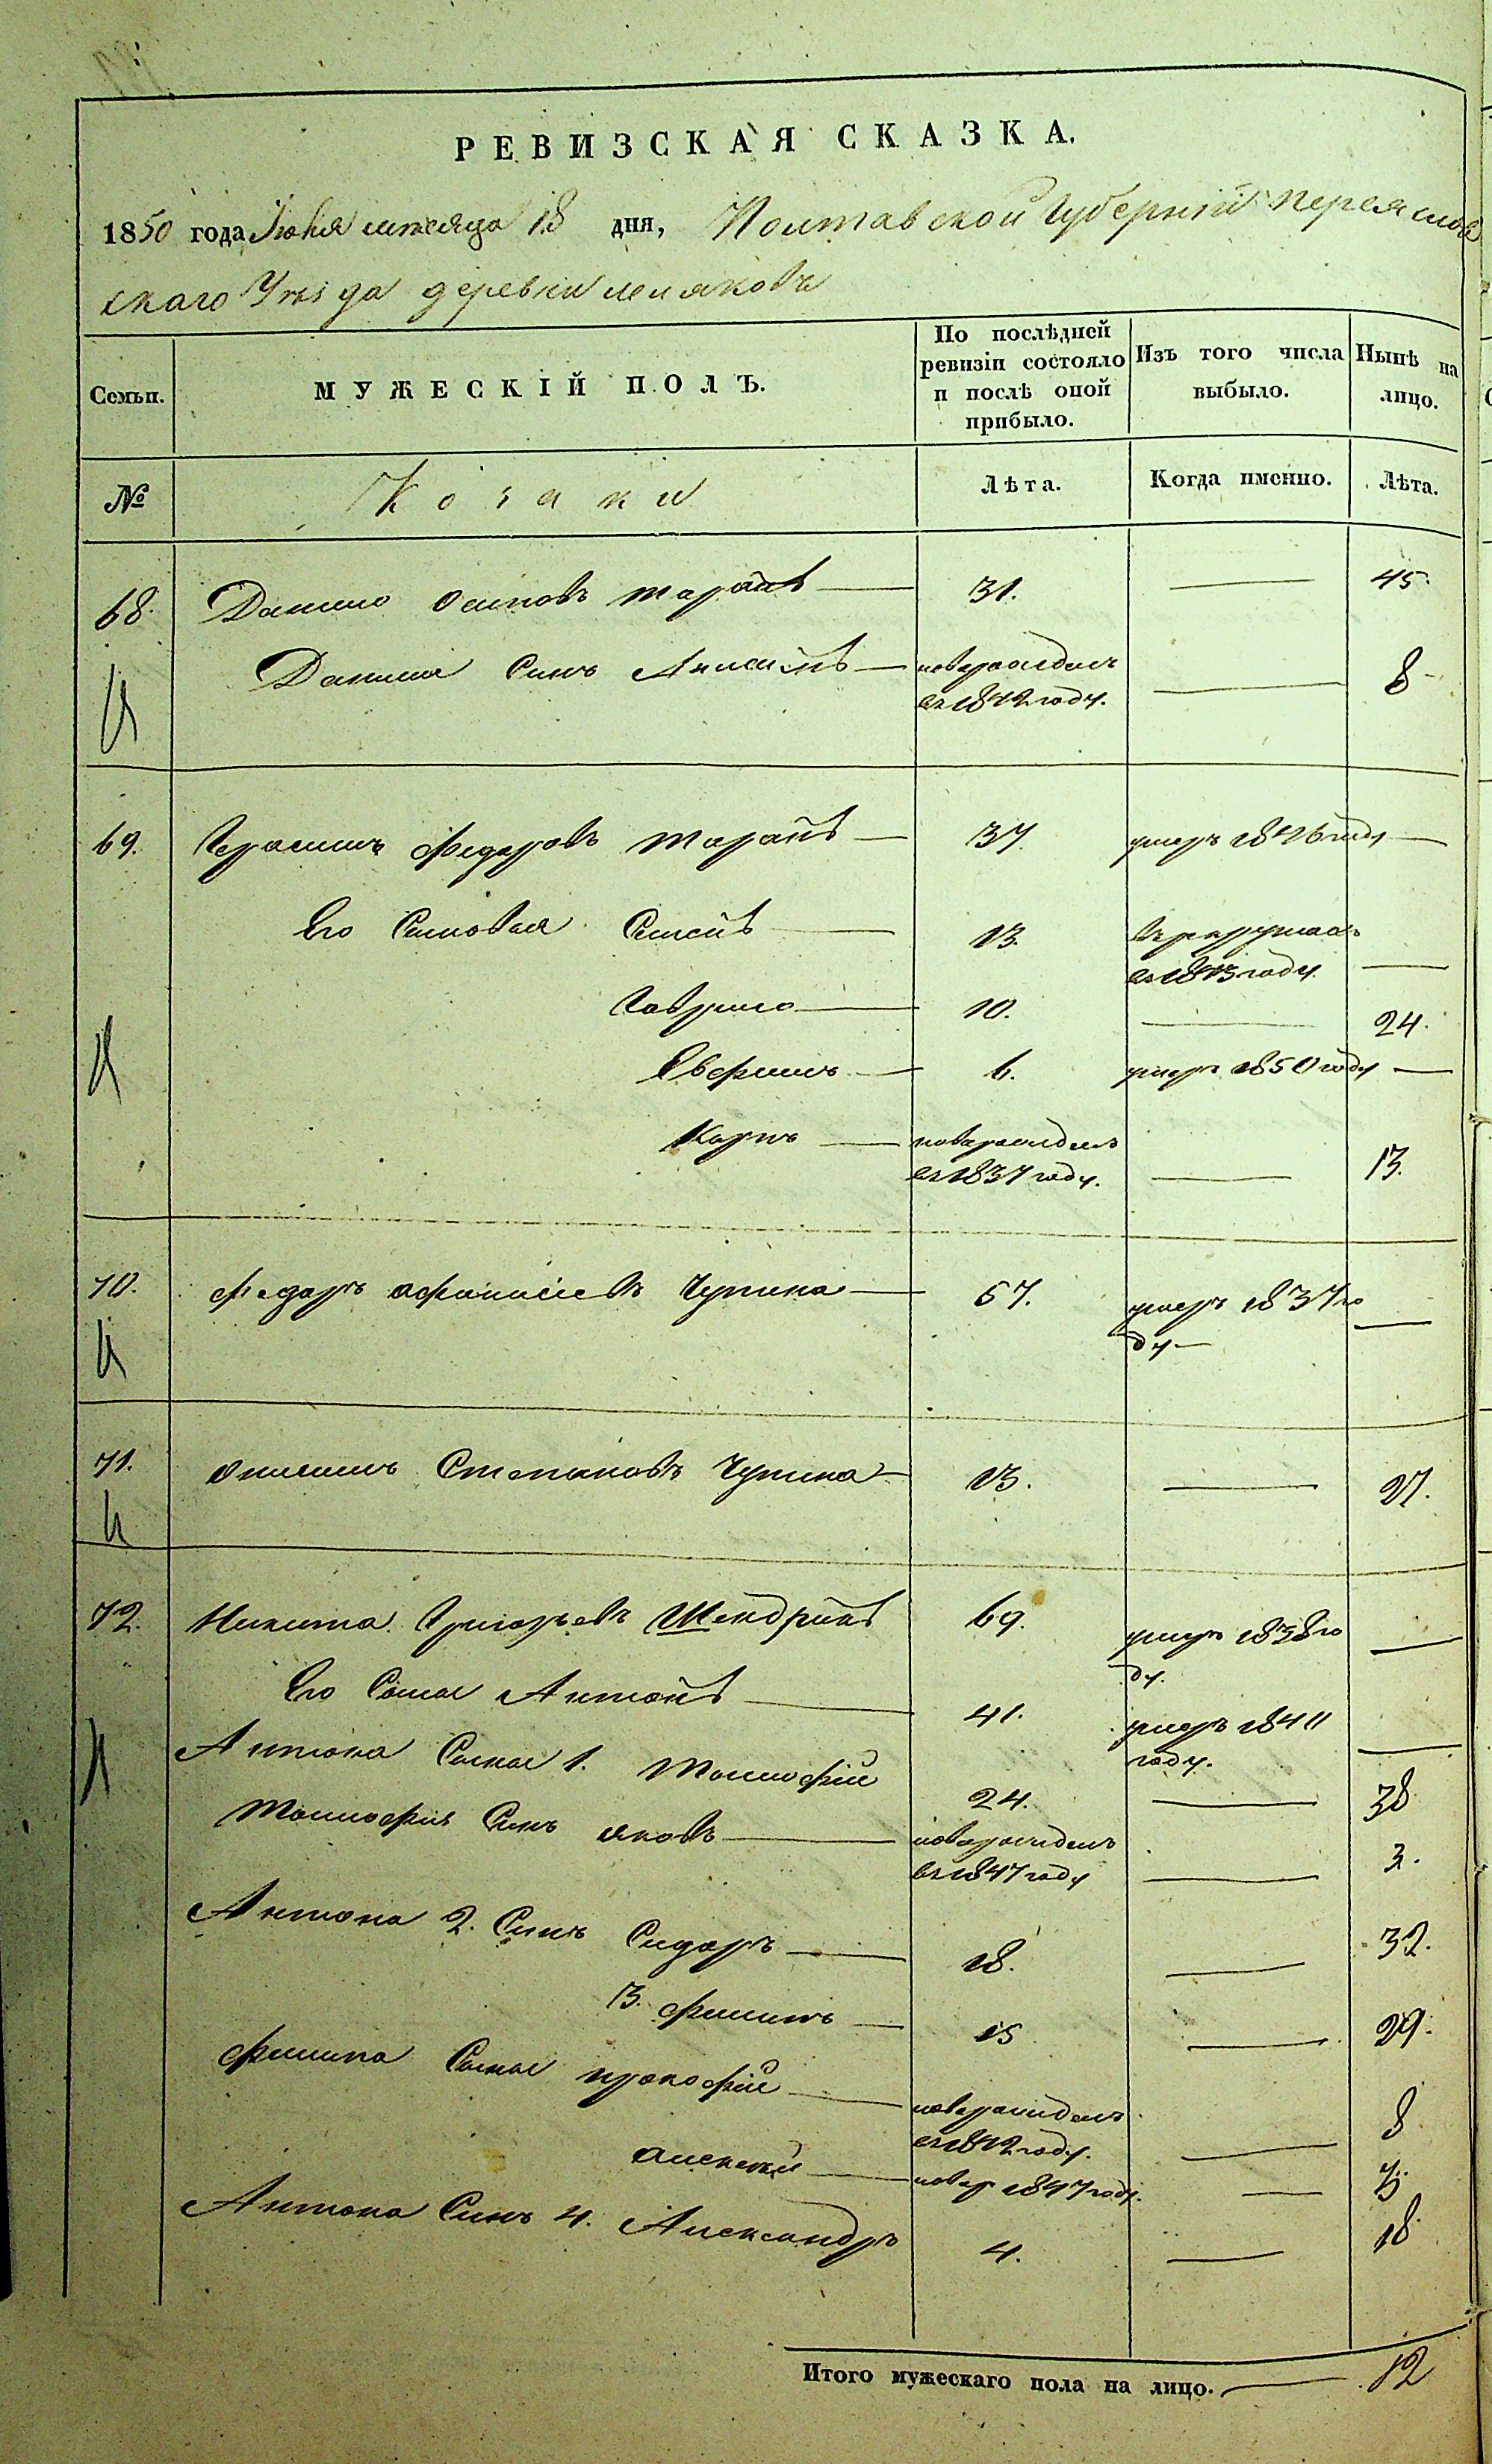 РЕВИЗСКАЯ СКАЗКА.
1850 года Июня месяца 18 дня, Полтавской Губернии Переяслов
скаго Уезда деревни
Семьи. МУЖЕСКІЙ ПОЛЪ. По послѣдней ревизіи состояло и послѣ оной прибыло. Изъ того числа выбыло. Нынѣ на лицо.
№ Козаки Лѣта. Когда именно. Лѣта.
68. Данило Осиповъ Таранъ — 31. — 45.
Данила Синъ Анисимъ — новорожденъ — 8
въ 1842 году.
69. Герасимъ Федоровъ Таранъ — 37. умеръ 1846 году —
Его Синовья Семенъ — 13. въ рекруты
въ 1843 году. —
Гаврило — 10. — 24.
Евфимъ — 6. умеръ 1850 году —
Карпъ — новорожденъ
въ 1837 году. — 13.
70. Федоръ Афанасіевъ Чупина — 67. умеръ 1837 го
ду — —
71. Онисимъ Степановъ Чупина — 13. — 27.
72. Никита Григорьевъ Шендрикъ 69. умеръ 1838 го
ду. —
Его Сынъ Антонъ — 41. умеръ 184
году. —
Антона Сынъ 1. Тимофій 24. — 38
Тимофія Синъ Яковъ — новорожденъ
въ 1847 году — 3.
Антона 2. Синъ Сидоръ — 18. — 32.
3. Филипъ — 15 — 29.
Филипа Сынъ Прокофій — новорожденъ
въ 1842 году. — 8
Алексей — новор 1847 году. — 3
Антона Синъ 4. Александръ 4. — 18
Итого мужескаго пола на лицо. — 12